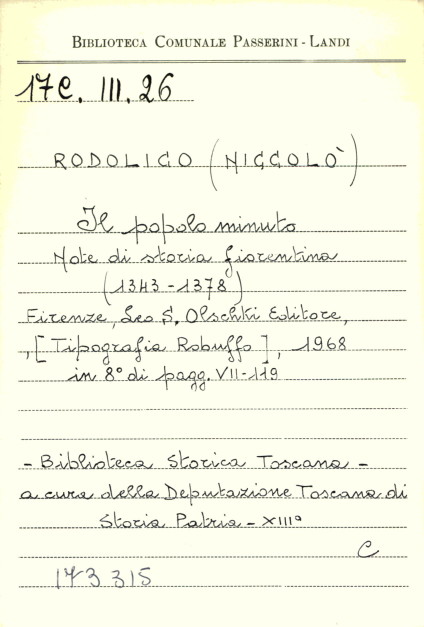 BIBLIOTECA COMUNALE PASSERINI - LANDI
17C. III. 26
RODOLICO (NICCOLÒ)
Il popolo minuto
Note di storia fiorentina
(1343-1378)
Firenze, Leo S. Olschki Editore,
, [Tipografia Robuffo], 1968
in 8° di pagg. VII-119
- Biblioteca Storica Toscana -
a cura della Deputazione Toscana di
Storia Patria - XIII°
C
173 315